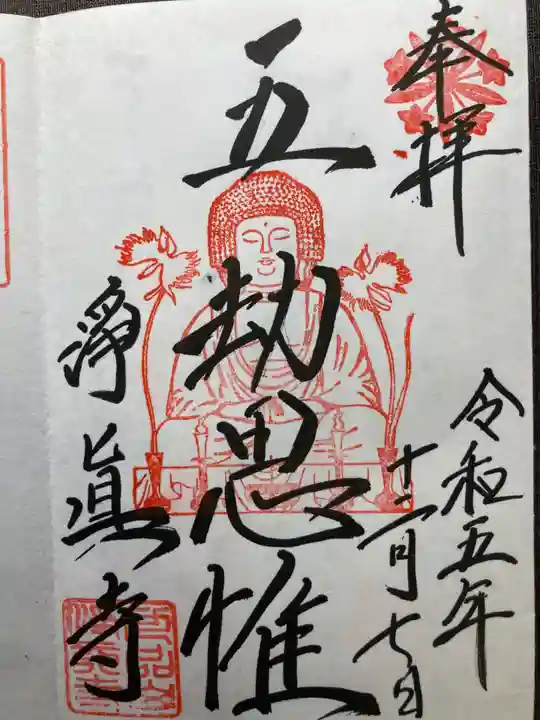 奉拝
令和五年
十二月七日
五劫思惟
淨眞寺